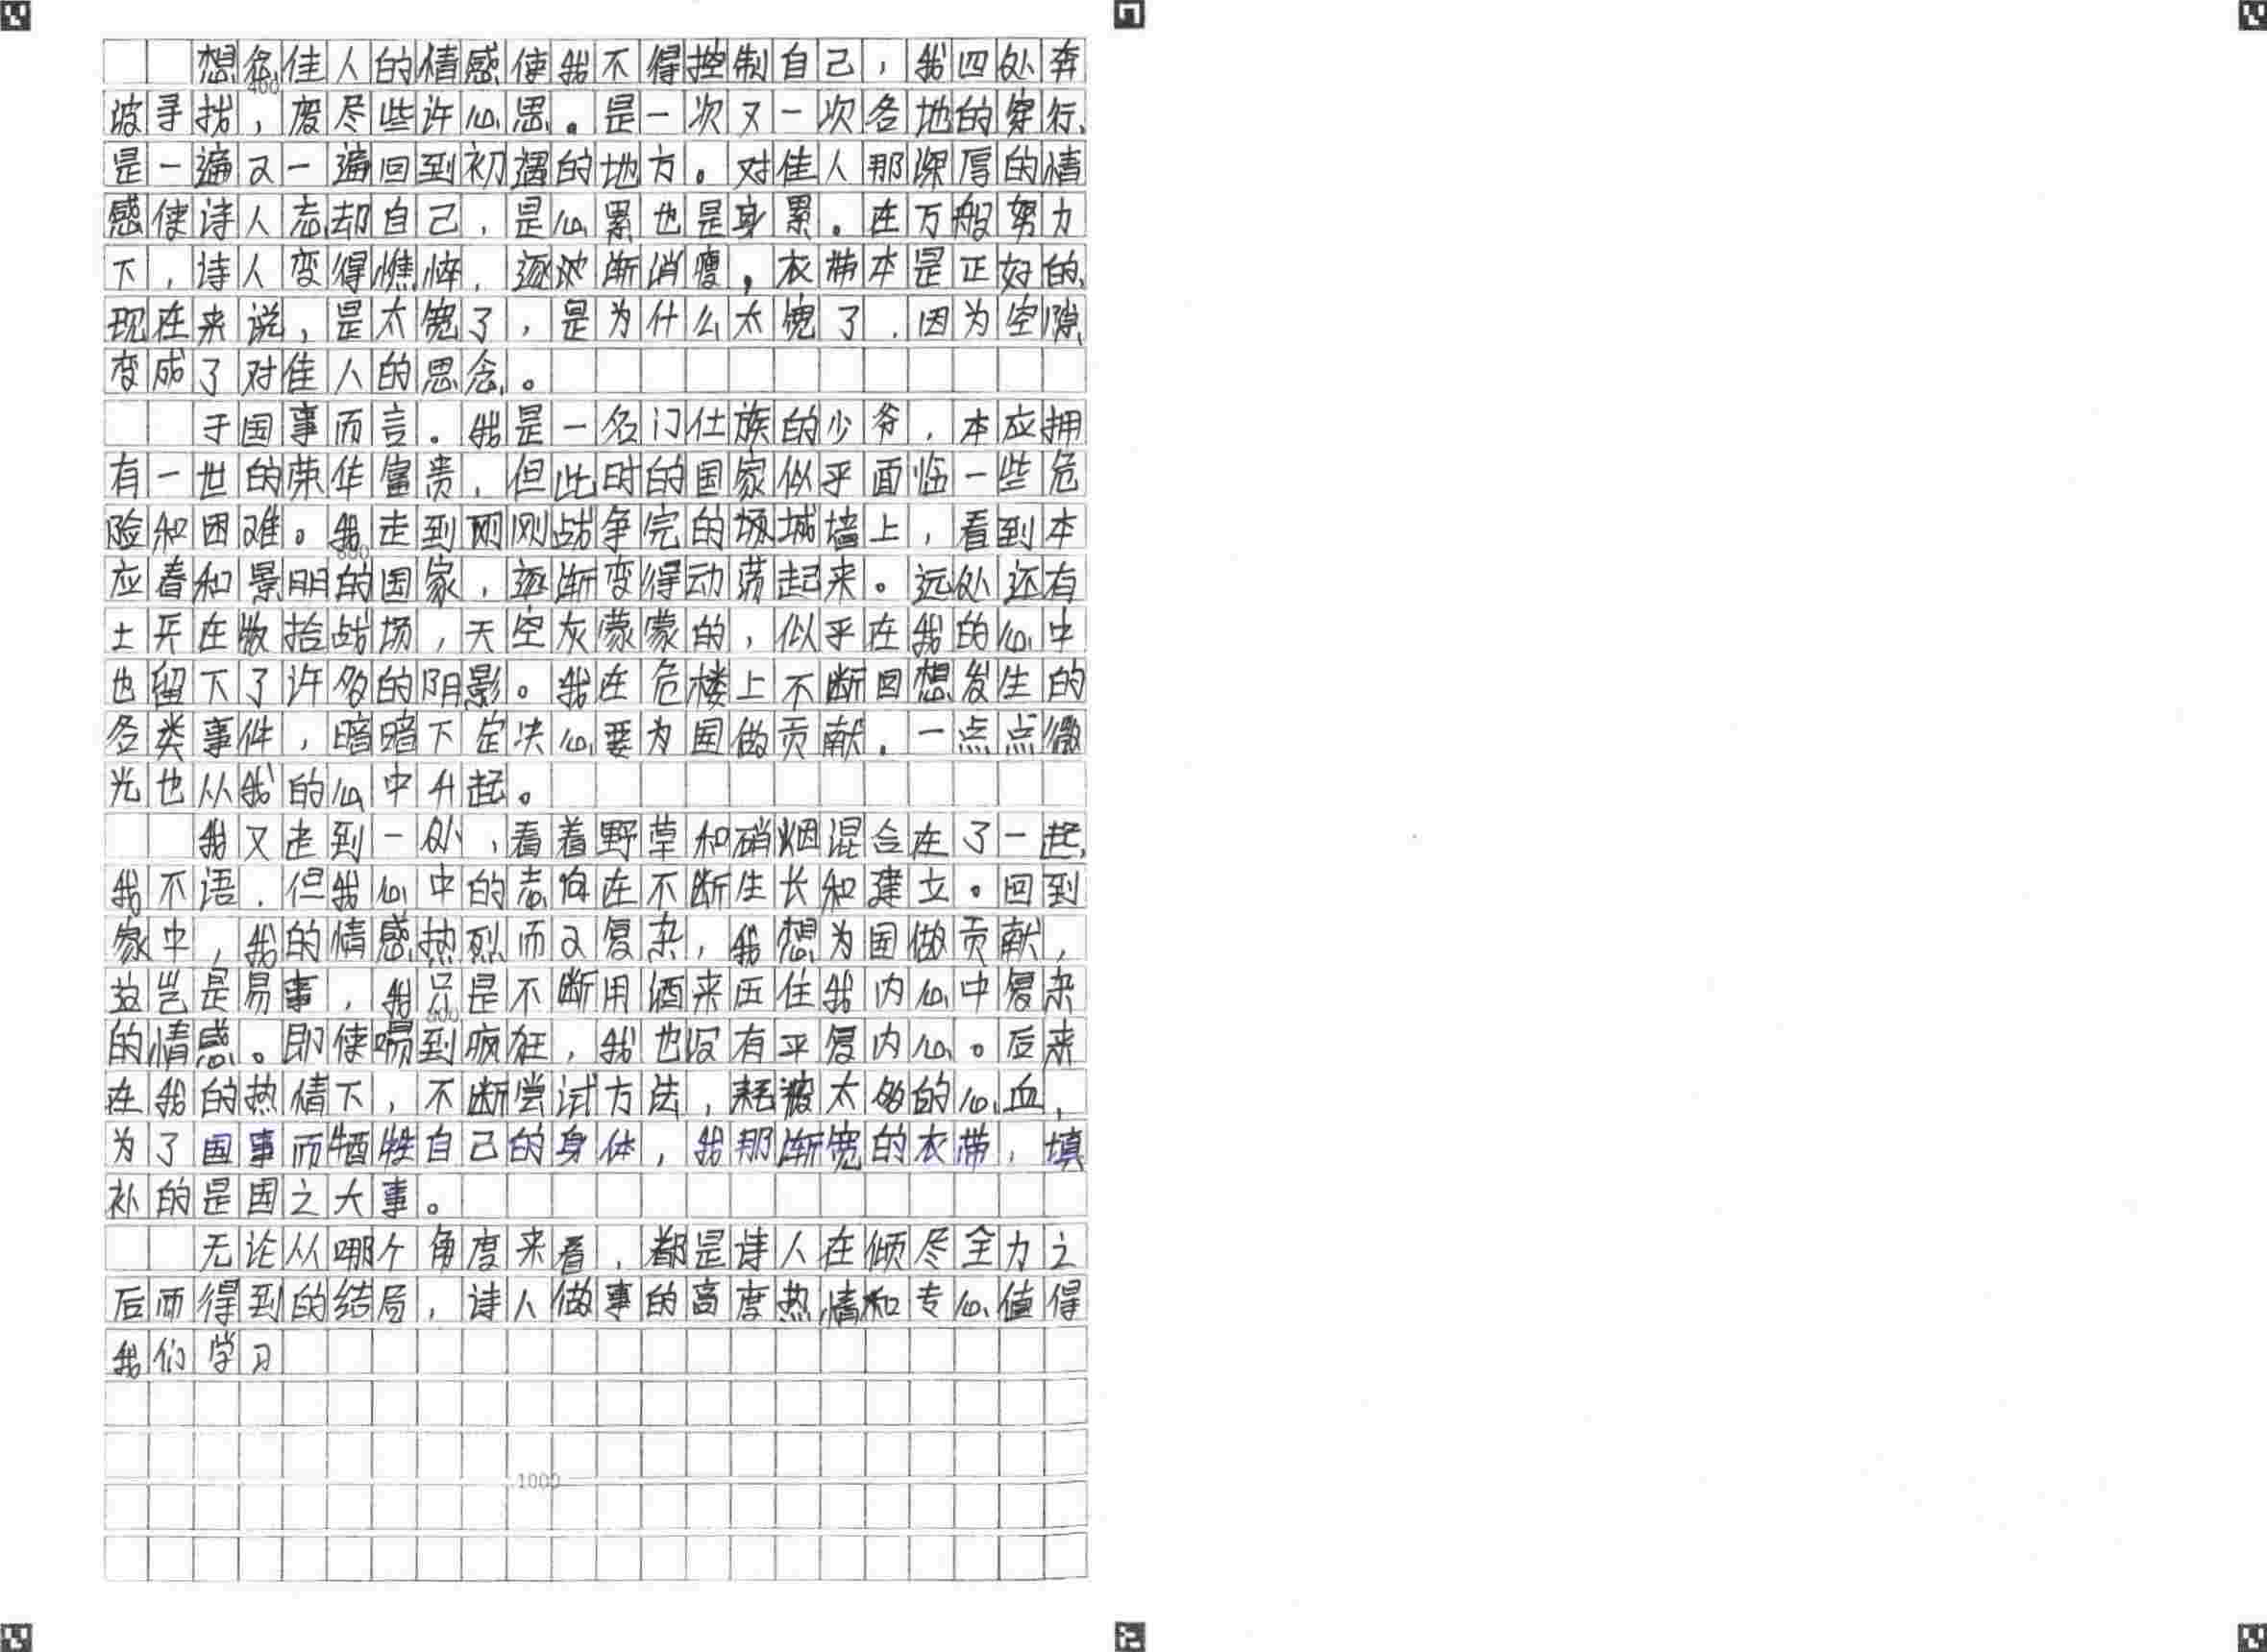 想念佳人的情感使我不得控制自己，我四处奔
400
波寻找，废尽些许心思。是一次又一次各地的穿行、
是一遍又一遍回到初遇的地方。对佳人那深厚的情
感使诗人忘却自己，是心累也是身累。在万般努力
下，诗人变得憔悴，逐渐消瘦，衣带本是正好的、
现在来说，是太宽了，是为什么太宽了，因为空隙
变成了对佳人的思念。
于国事而言。我是一名门仕族的少爷，本应拥
有一世的荣华富贵，但此时的国家似乎面临一些危
险和困难。我走到刚刚战争完的城墙上，看到本
600
应春和景明的国家，逐渐变得动荡起来。远处还有
士兵在收拾战场，天空灰蒙蒙的，似乎在我的心中
也留下了许多的阴影。我在危楼上不断回想发生的
各类事件，暗暗下定决心要为国做贡献。一点点微
光也从我的心中升起。
我又走到一处，看着野草和硝烟混合在了一起，
我不语，但我心中的志向在不断生长和建立。回到
家中，我的情感热烈而又复杂，我想为国做贡献，
这岂是易事，我只是不断用酒来压住我内心中复杂
800
的情感。即使喝到疯狂，我也没有平复内心。后来
在我的热情下，不断尝试方法，耗波太多的心血，
为了国事而牺牲自己的身体，我那渐宽的衣带，填
补的是国之大事。
无论从哪个角度来看，都是诗人在倾尽全力之
后而得到的结局，诗人做事的高度热情和专心值得
我们学习
1000